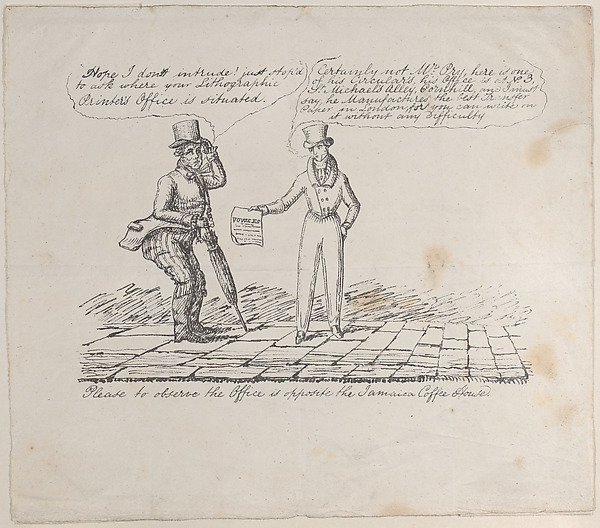 Hope I don't intrude! just stop'd
to ask where your Lithographic
Printers Office is situated.
Certainly not Mr. Pry, here is one
of his Circulars, his Office is at No 3,
St. Michaels Alley, Cornhill, and I must
say he Manufactures the best Transfer
Paper in London for you can write on
it without any Difficulty
Please to observe the Office is opposite the Jamaica Coffee House.